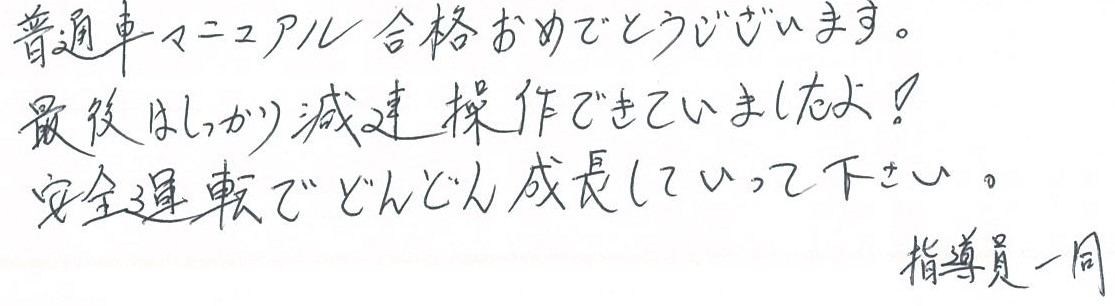 普通車マニュアル合格おめでとうございます。
最後はしっかり減速操作できていましたよ！
安全運転でどんどん成長していって下さい。
指導員一同